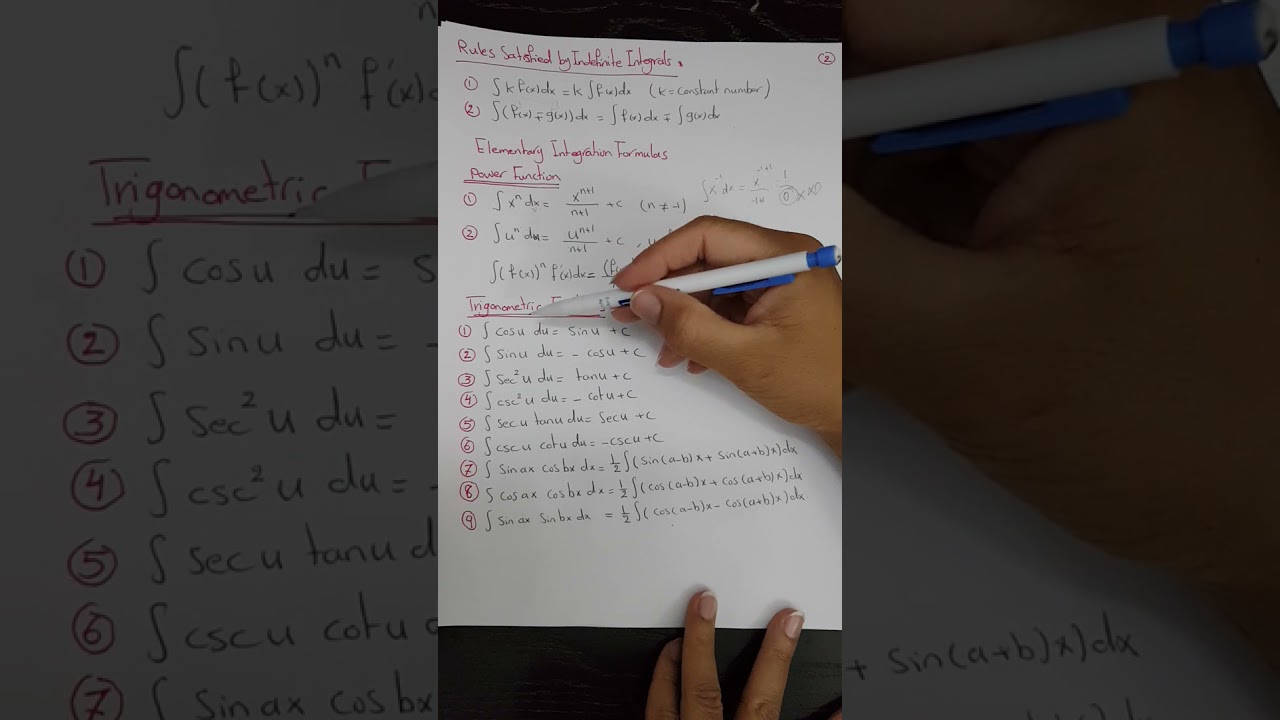 Rules Satisfied by Indefinite Integrals.
②
① ∫ k f(x)dx = k ∫ f(x)dx (k=constant number)
② ∫(f(x) ∓ g(x))dx = ∫ f(x)dx ∓ ∫ g(x)dx
Elementary Integration Formulas
Power Function
① ∫ xⁿ dx = xⁿ⁺¹/n+1 + c (n ≠ -1)
∫ x⁻¹ dx = x⁻¹⁺¹/-1+1 1/0
② ∫ uⁿ du = uⁿ⁺¹/n+1 + c , u
∫(f(x))ⁿ f'(x)dx = (f(x
Trigonometric
① ∫ cosu du = sinu + c
② ∫ sinu du = - cosu + c
③ ∫ sec²u du = tanu + c
④ ∫ csc²u du = - cotu + c
⑤ ∫ secu tanu du = secu + c
⑥ ∫ cscu cotu du = -cscu + c
⑦ ∫ sinax cosbx dx = 1/2 ∫(sin(a-b)x + sin(a+b)x)dx
⑧ ∫ cosax cosbx dx = 1/2 ∫(cos(a-b)x + cos(a+b)x)dx
⑨ ∫ sinax sinbx dx = 1/2 ∫(cos(a-b)x - cos(a+b)x)dx